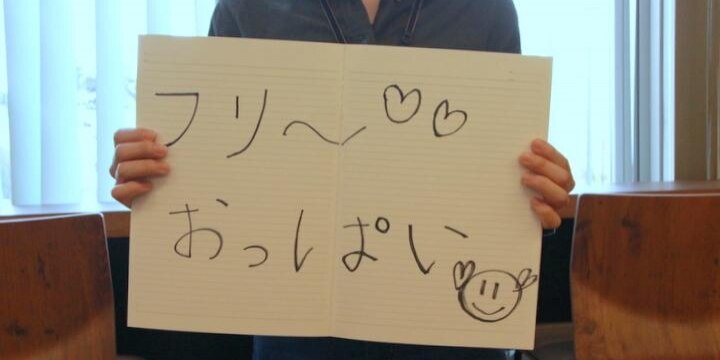 フリ〜♡♡
おっぱい